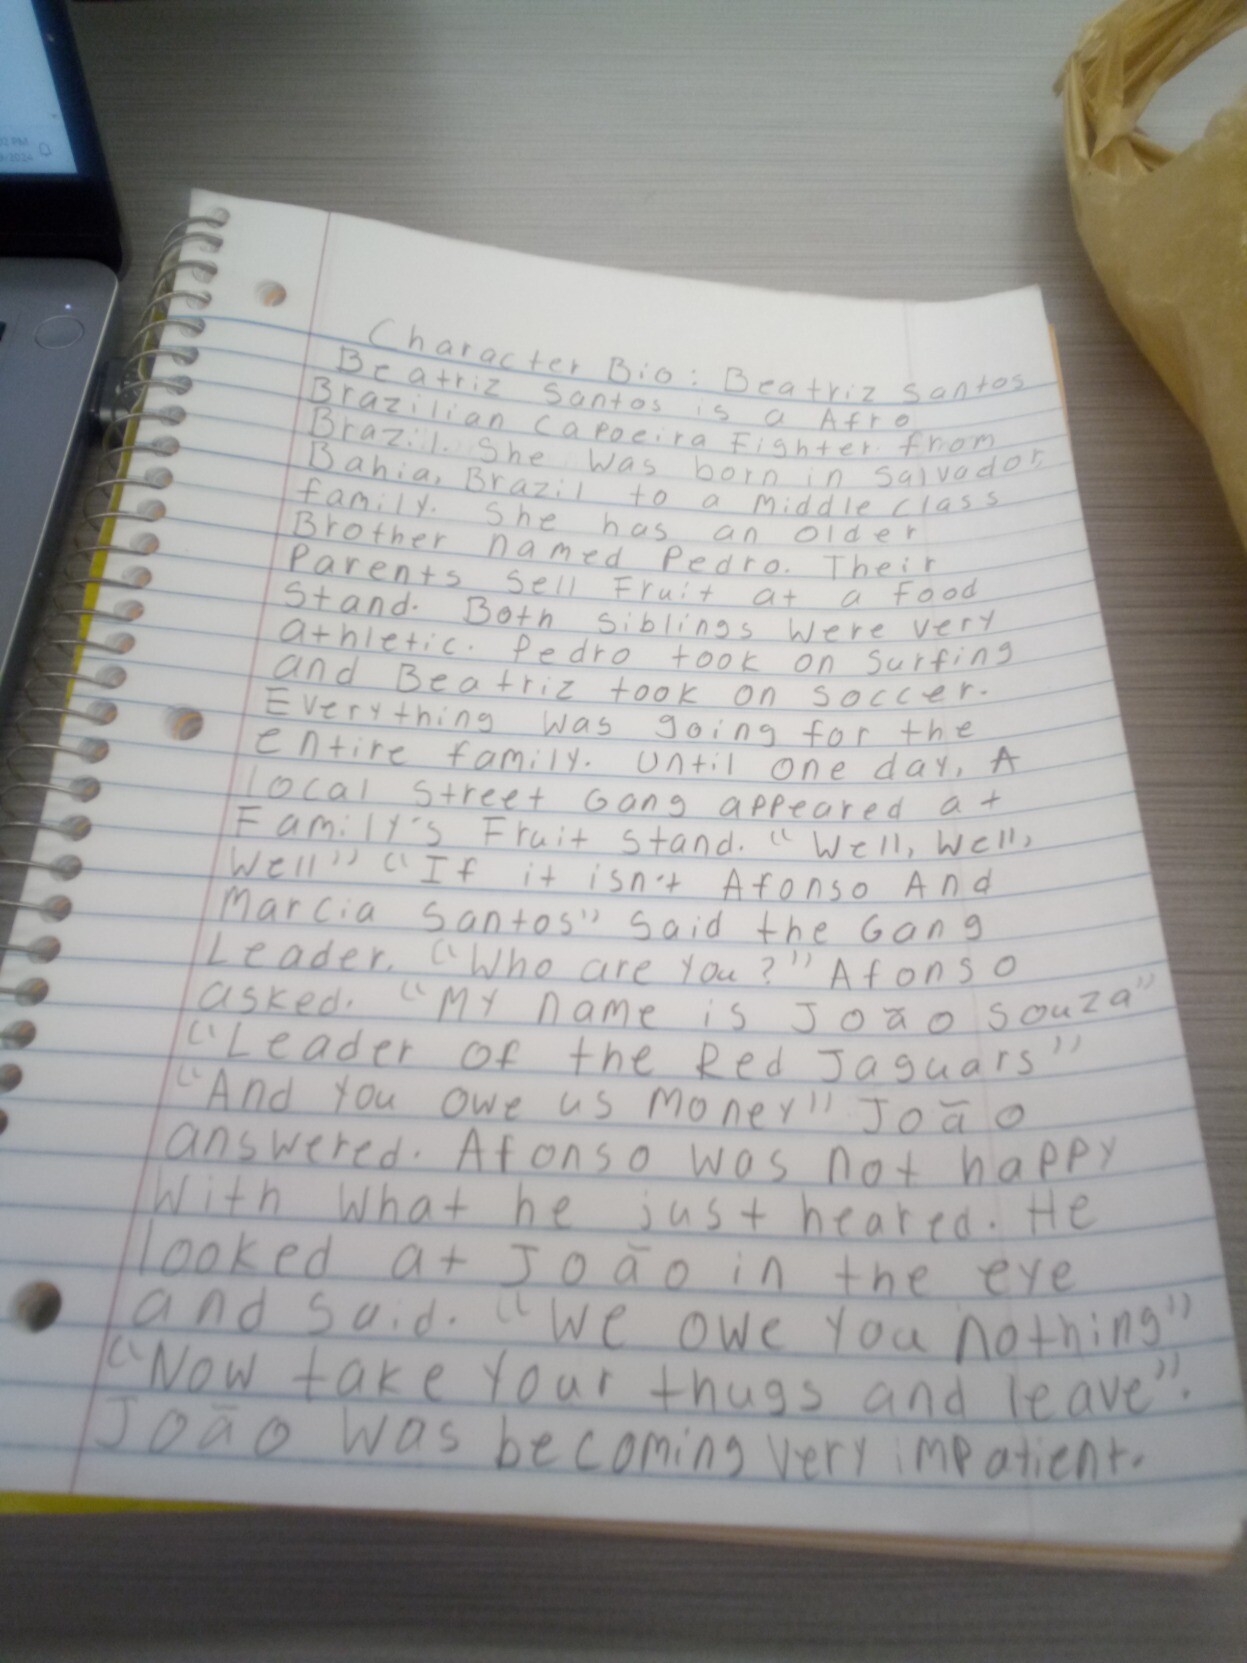 Character Bio: Beatriz Santos
Beatriz Santos is a Afro
Brazilian Capoeira Fighter from
Brazil. She was born in Salvador,
Bahia, Brazil to a middle class
family. She has an older
Brother named Pedro. Their
Parents sell Fruit at a food
Stand. Both siblings were very
athletic. Pedro took on surfing
and Beatriz took on soccer.
Everything was going for the
entire family. Until one day, A
local street Gang appeared at
Family's Fruit stand. "Well, Well,
Well" "If it isn't Afonso And
Marcia Santos" said the Gang
Leader. "Who are you?" Afonso
asked. "My name is João Souza"
"Leader of the Red Jaguars"
"And you owe us money" João
answered. Afonso was not happy
With what he just heared. He
looked at João in the eye
and said. "We owe you nothing"
"Now take your thugs and leave".
João was becoming very impatient.